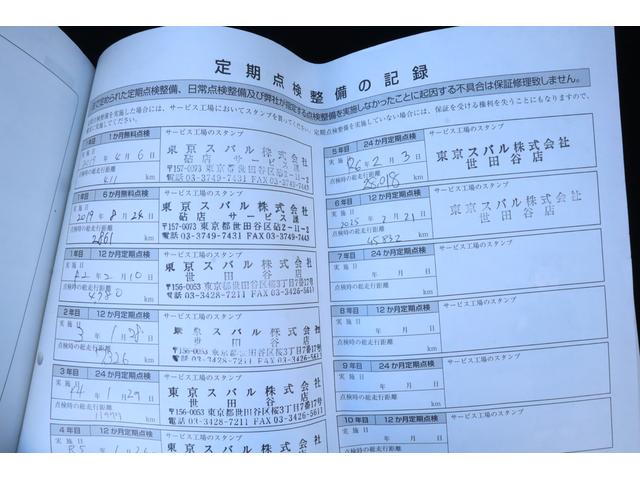 定期点検整備の記録
で定められた定期点検整備、日常点検整備及び弊社が指定する点検整備を実施しなかったことに起因する不具合は保証修理致しません。
検整備を実施した場合には、サービス工場においてスタンプを貰ってください。定期点検整備を実施していない場合には、保証を受ける権利を失うことにもなりますので、
実施してください。
1か月無料点検
サービス工場のスタンプ
年4月6日
点検時の総走行距離
411 km
東京スバル株式会社
砧店 サービス課
〒157-0073 東京都世田谷区砧2-11-2
03-3749-7431 FAX 03-3749-7443
1年目 6か月無料点検
サービス工場のスタンプ
実施日
2019年8月26日
点検時の総走行距離
2861 km
東京スバル株式会社
砧店 サービス課
〒157-0073 東京都世田谷区砧2-11-2
03-3749-7431 FAX 03-3749-7443
1年目 12か月定期点検
サービス工場のスタンプ
実施日
R2年2月10日
点検時の総走行距離
4980 km
東京スバル株式会社
世田谷店
〒156-0053 東京都世田谷区桜3丁目7番17号
03-3428-7211 FAX 03-3426-5611
2年目 12か月定期点検
サービス工場のスタンプ
実施日
3年1月28日
点検時の総走行距離
km
東京スバル株式会社
世田谷店
〒156-0053 東京都世田谷区桜3丁目7番17号
03-3428-7211 FAX 03-3426-5611
3年目 24か月定期点検
サービス工場のスタンプ
実施日
R4年1月29日
点検時の総走行距離
km
東京スバル株式会社
世田谷店
〒156-0053 東京都世田谷区桜3丁目7番17号
03-3428-7211 FAX 03-3426-5611
4年目 12か月定期点検
サービス工場のスタンプ
実施日
R5年1月26日
東京スバル株式会社
5年目 24か月定期点検
サービス工場のスタンプ
実施日
R6年2月3日
点検時の総走行距離
28018 km
東京スバル株式会社
世田谷店
6年目 12か月定期点検
サービス工場のスタンプ
実施日
2025年2月21日
点検時の総走行距離
45832 km
東京スバル株式会社
世田谷店
7年目 24か月定期点検
サービス工場のスタンプ
実施日
年 月 日
点検時の総走行距離
km
8年目 12か月定期点検
サービス工場のスタンプ
実施日
年 月 日
点検時の総走行距離
km
9年目 24か月定期点検
サービス工場のスタンプ
実施日
年 月 日
点検時の総走行距離
km
10年目 12か月定期点検
サービス工場のスタンプ
実施日
年 月 日
点検時の総走行距離